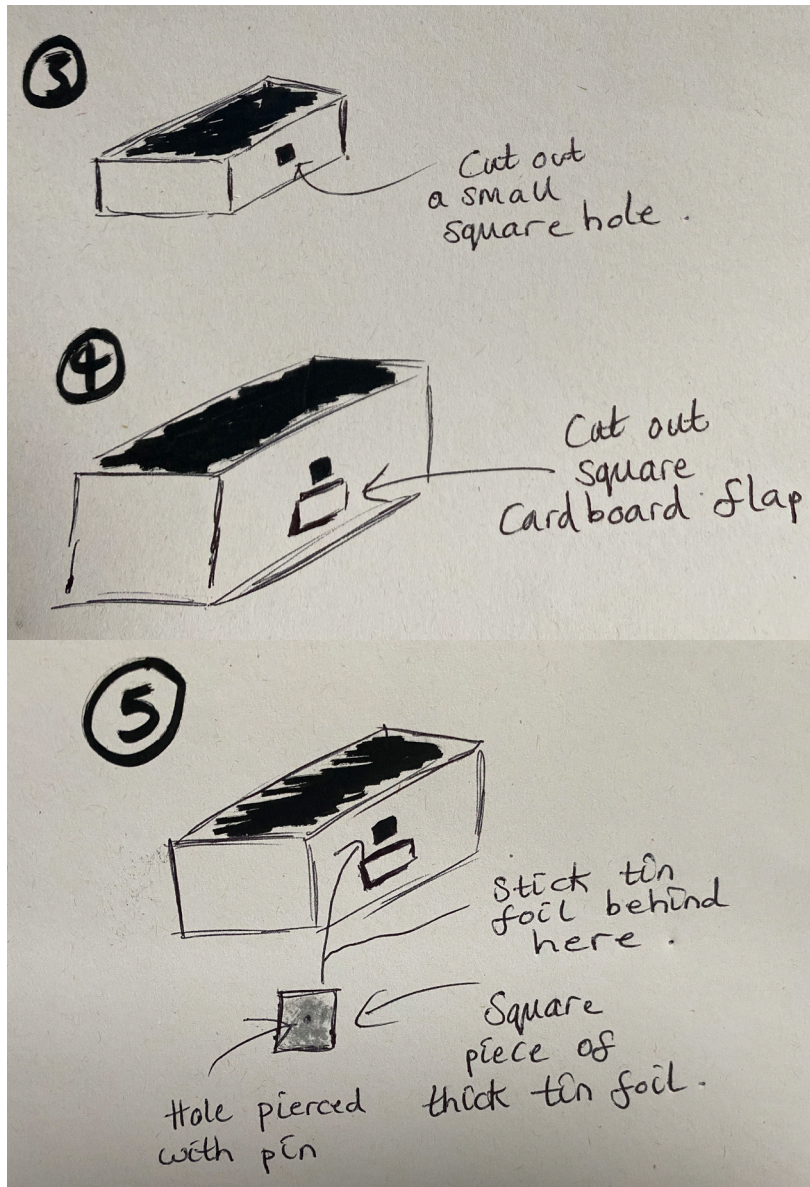 3
Cut out
a small
square hole.
4
Cut out
square
Cardboard flap
5
Stick tin
foil behind
here.
Square
piece of
thick tin foil.
Hole pierced
with pin